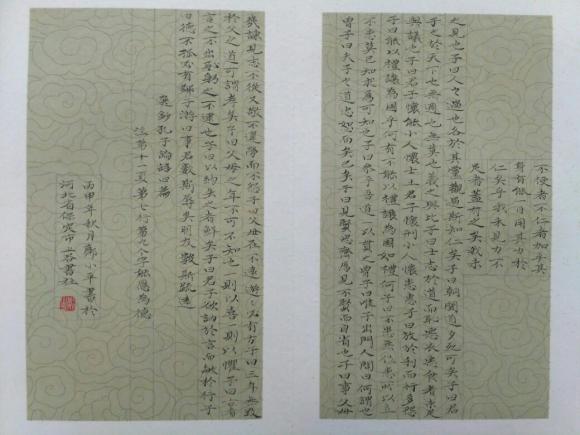 不使者不仁者加乎其
身有能一日用其力於
仁矣乎我未見力不
足者蓋有之矣我未
之見也子曰人之過也各於其黨觀過斯知仁矣子曰朝聞道夕死可矣子曰君
子之於天下也無適也無莫也義之與比子曰士志於道而恥惡衣惡食者未足
與議也子曰君子懷能小人懷土君子懷刑小人懷惠子曰放於利而行多怨
子曰能以禮讓為國乎何有不能以禮讓為國如禮何子曰不患無位患所以立
不患莫己知求為可知也子曰參乎吾道一以貫之曾子曰唯子出門人問曰何謂也
曾子曰夫子之道忠恕而矣子曰見賢思齊焉見不賢而自省也子曰事父母
幾諫見志不從又敬不違勞而不怨子曰父母在不遠遊必有方子曰三年無改
於父之道可謂孝矣子曰父母之年不可不知也一則以喜一則以懼子曰古者
言之不出恥躬之不逮也子曰以約失之者鮮矣子曰君子欲訥於言而敏於行子
曰德不孤必有鄰子游曰事君數斯辱矣朋友數斯疏
孔子論語四篇
注第十一頁第七行第九字能應為德
丙申年秋月鄭小平書於
河北省保定市上谷書社